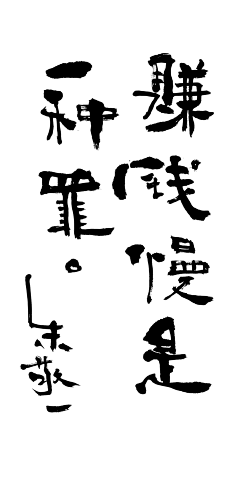 赚钱慢是
一种罪。
朱敬一